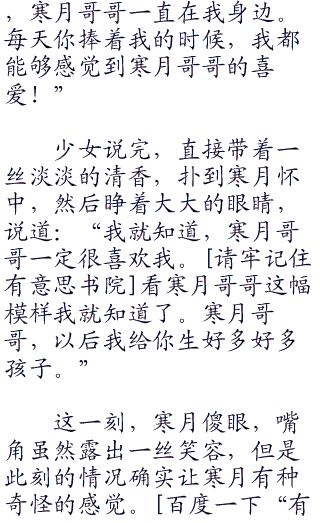 ，寒月哥哥一直在我身边。
每天你捧着我的时候，我都
能够感觉到寒月哥哥的喜
爱！”
少女说完，直接带着一
丝淡淡的清香，扑到寒月怀
中，然后睁着大大的眼睛，
说道：“我就知道，寒月哥
哥一定很喜欢我。[请牢记住
有意思书院]看寒月哥哥这幅
模样我就知道了。寒月哥
哥，以后我给你生好多好多
孩子。”
这一刻，寒月傻眼，嘴
角虽然露出一丝笑容，但是
此刻的情况确实让寒月有种
奇怪的感觉。[百度一下“有